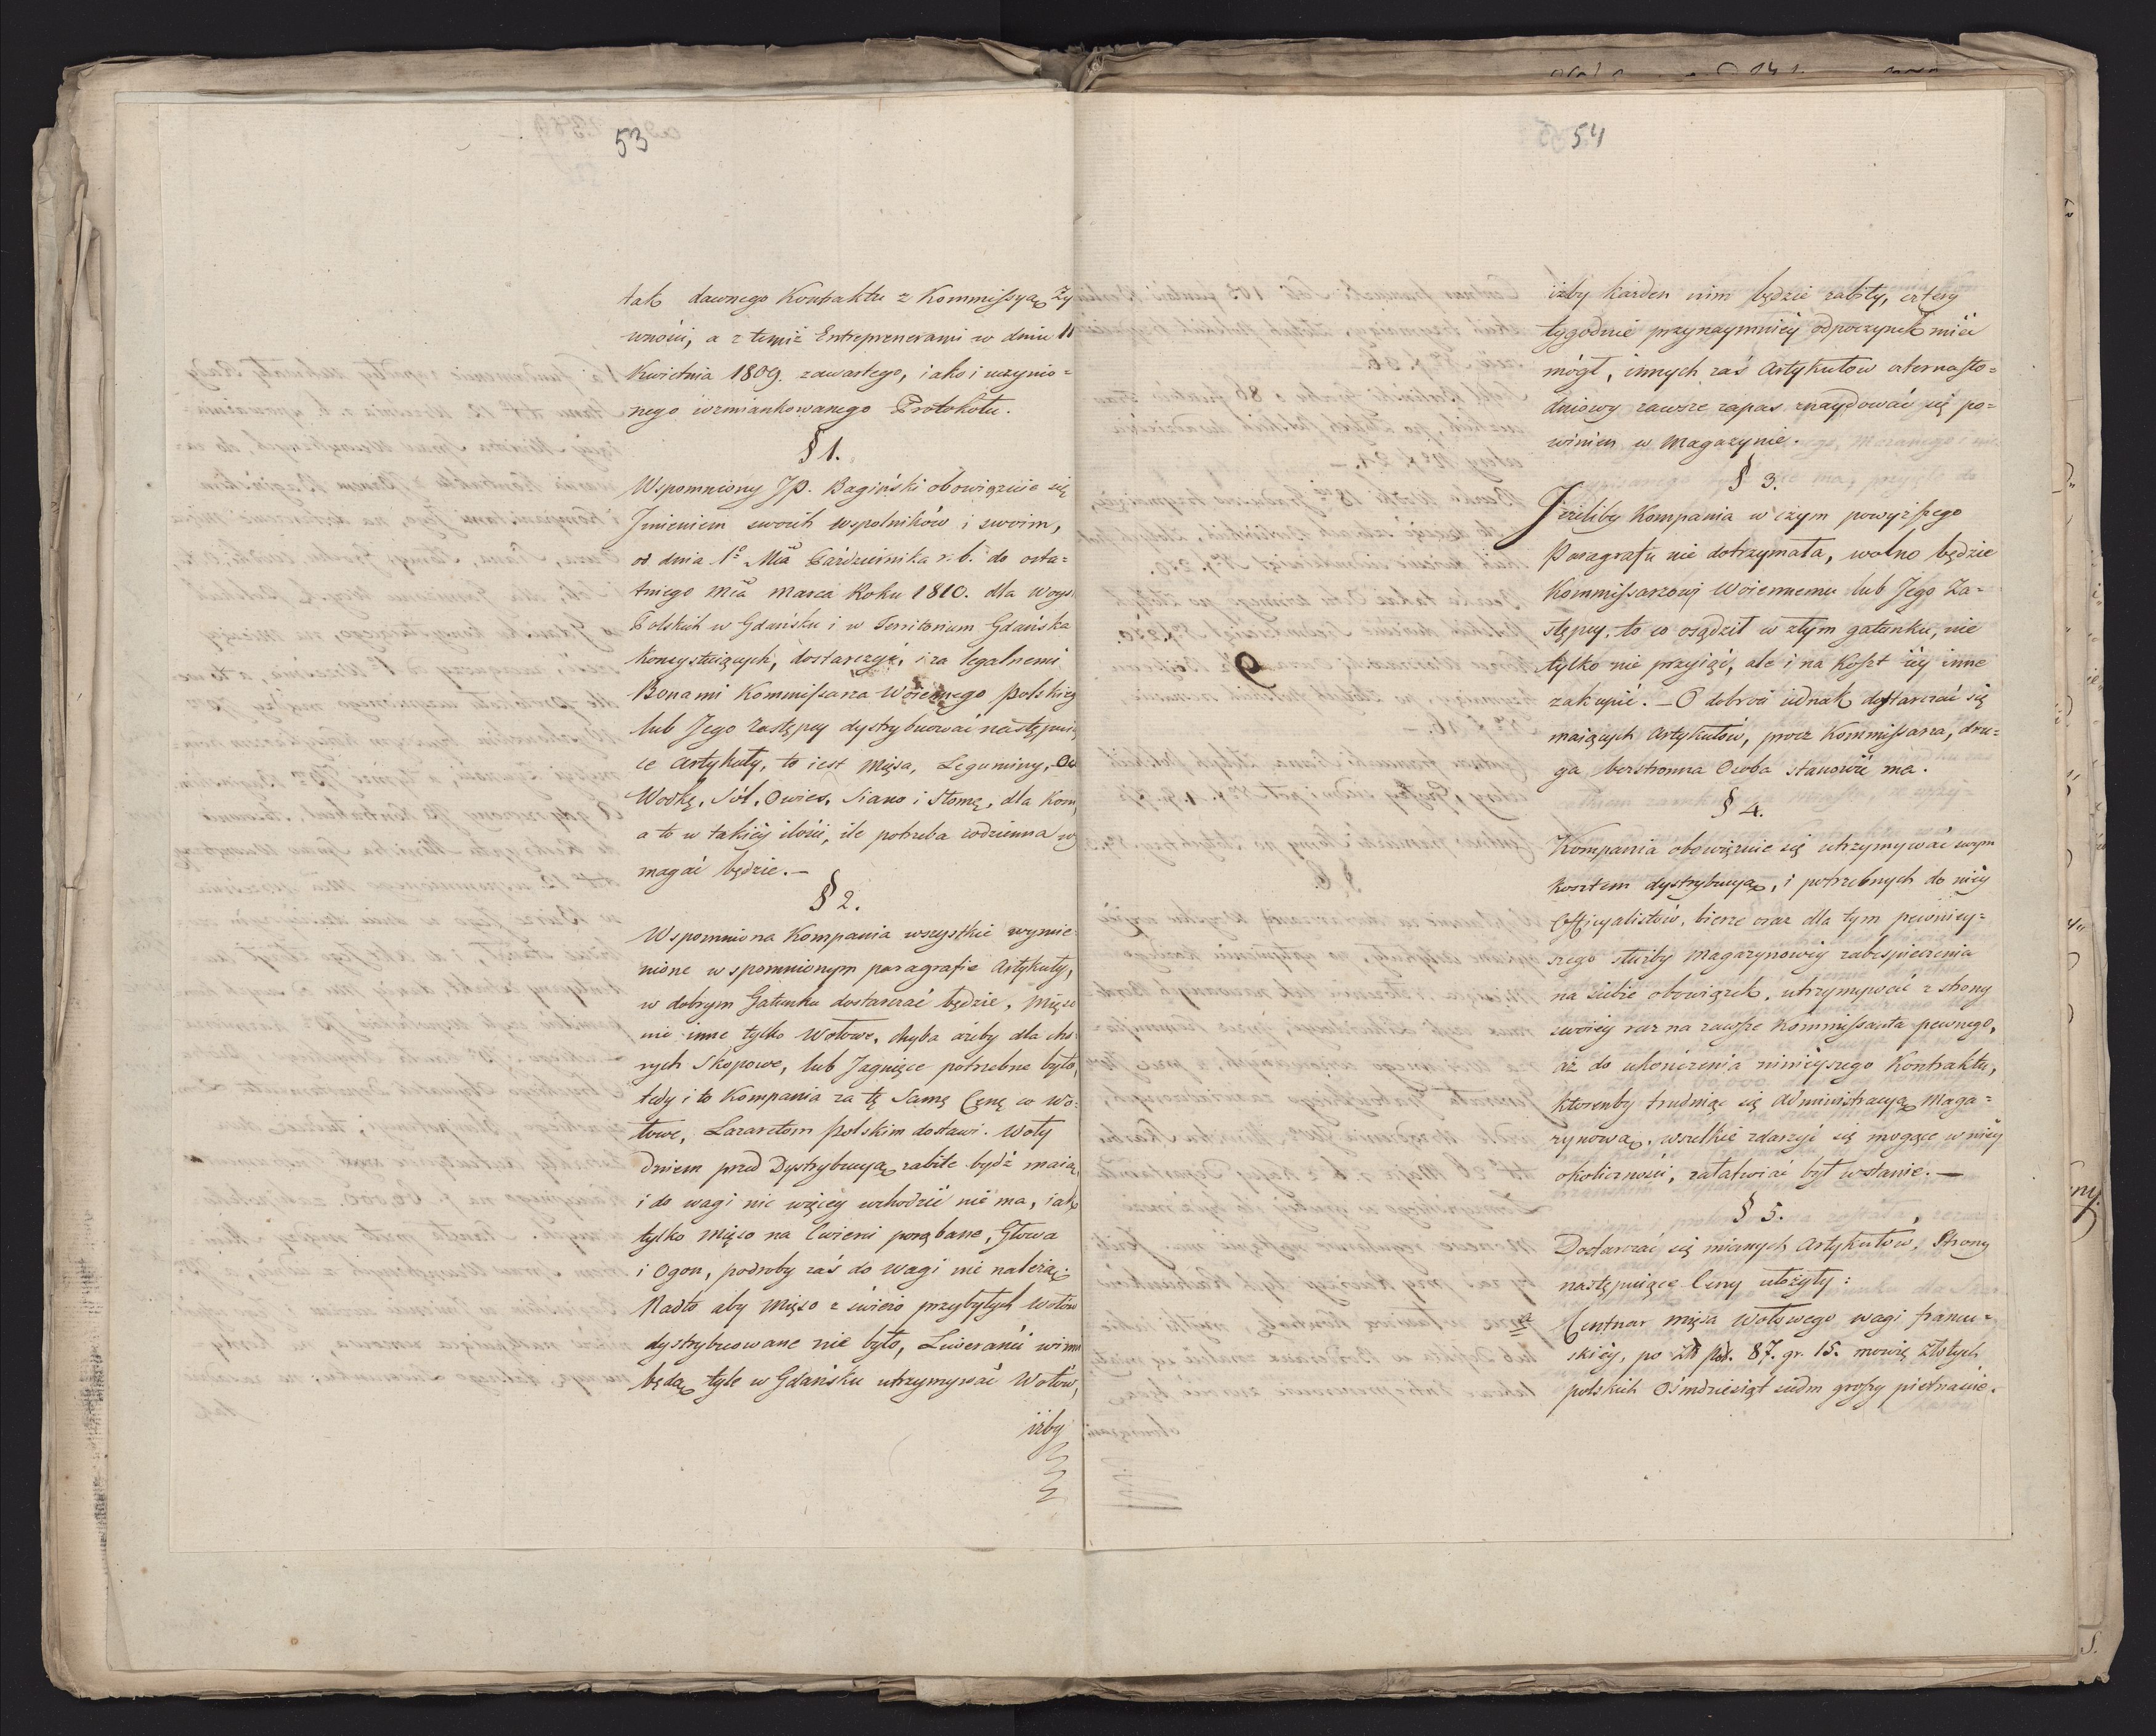 53
tak dawnego Kontraktu z Kommissyą Ży
wności, a z temiż Entreprenerami w dniu 11
Kwietnia 1809. zawartego, iako i uczynio=
nego wzmiankowanego Protokołu.
§ 1.
Wspomniony JP. Bagiński obowięzuie się
Jmieniem swoich wspolników i swoim,
od dnia 1º Mca Października r. b. do osta=
tniego Mca Marca Roku 1810. dla Woys
Polskich w Gdańsku i w Territorium Gdańska
konsystuiących, dostarczyć, i za legalnemi
Bonami Kommissarza Woiennego Polskieg
lub Jego Zastępcy dystrybuować następui
ce Artykuły, to iest Mięsa, Leguminy,
Wodkę, Sól, Owies, Siano i Słomę, dla Kom
a to w takiéy ilości, ile potrzeba codzienna wy
magać będzie.—
§ 2.
Wspomniona Kompania wszystkie wymie=
nione w spomnionym paragrafie Artykuły,
w dobrym Gatunku dostarczać będzie, Mięso
nie inne tylko Wołowe, chyba ażeby dla cho
rych Skopowe, lub Jagnięce potrzebne było,
tedy i to Kompania za tę Samę Cenę co Wo=
łowe, Lazaretom Polskim dostawi. Woły
dniem przed Dystrybucyą zabite bydź maią,
i do wagi nic więcéy wchodzić nie ma, iak
tylko Mięso na Cwierci porąbane, Głowa
i Ogon, podroby zaś do Wagi nie należą.
Nadto aby Mięso z świeżo przybyłych Wołów
dystrybuowane nie było, Liweranci winni
będą tyle w Gdańsku utrzymywać Wołów,
iżby
54
iżby każden nim będzie zabity, cztery
tygodnie przynaymniéy odpoczynek mieć
mógł, innych zaś Artykułow czternasto=
dniowy zawsze zapas znaydować się po=
winien w Magazynie.
§ 3.
Jeżeliby Kompania w czym powyższego
Paragrafu nie dotrzymała, wolno będzie
Kommissarzowi Woiennemu lub Jego Za=
stępcy, to co osądzić w złym gatunku, nie
tylko nie przyiąć, ale i na Koszt iéy inne
zakupić.— O dobroci iednak dostarczać się
maiących Artykułów, procz Kommissarza, dru=
ga bezstronna Osoba stanowić ma.
§ 4.
Kompania obowięzuie się utrzymywać swym
kosztem dystrybucyą, i potrzebnych do niéy
Officyalistów, bierze oraz dla tym pewniey=
szego służby Magazynowéy zabespieczenia
na siebie obowiązek, utrzymywać z strony
swoiéy raz na zawsze Kommissanta pewnego,
aż do ukończenia ninieyszego Kontraktu,
ktorenby trudniąc się Administracyą Maga=
zynową, wszelkie zdarzyć się mogące w niéy
okoliczności, załatwiać był wstanie.—
§ 5.
Dostarczać się mianych Artykułów, Strony
następuiące Ceny ułożyły:
Centnar mięsa Wołowego wagi francu=
skiéy, po Zł. Pol. 87. gr. 15. mowię Złotych
polskich Ośmdziesiąt siedm groszy pietnaście.